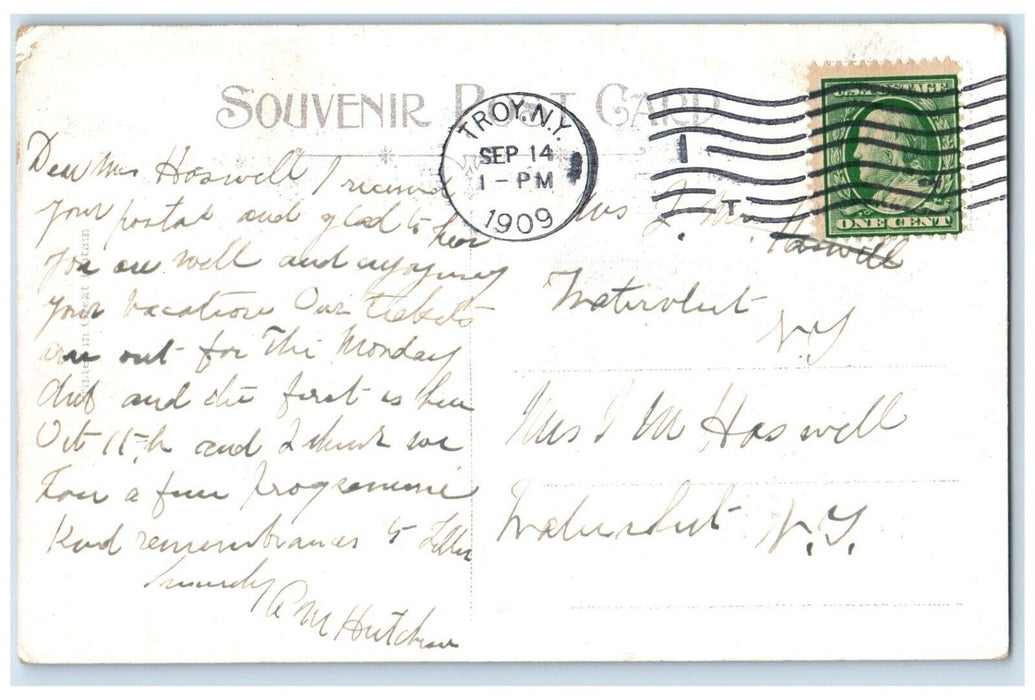 SOUVENIR POST CARD
TROY, N.Y.
SEP 14
1 - PM
1909
1
T
U.S. POSTAGE
ONE CENT
Dear Mrs Haswell I received
your postal and glad to hear
you are well and enjoying
your vacation Our tickets
are out for the Monday
and the first is here
Oct 11th and I think we
have a fine programme
Kind remembrances to
Sincerely
A M Hutchins
Mrs I. M. Haswell
Watervliet
N.Y.
Mrs I M Haswell
Watervliet N.Y.
Printed in Great Britain